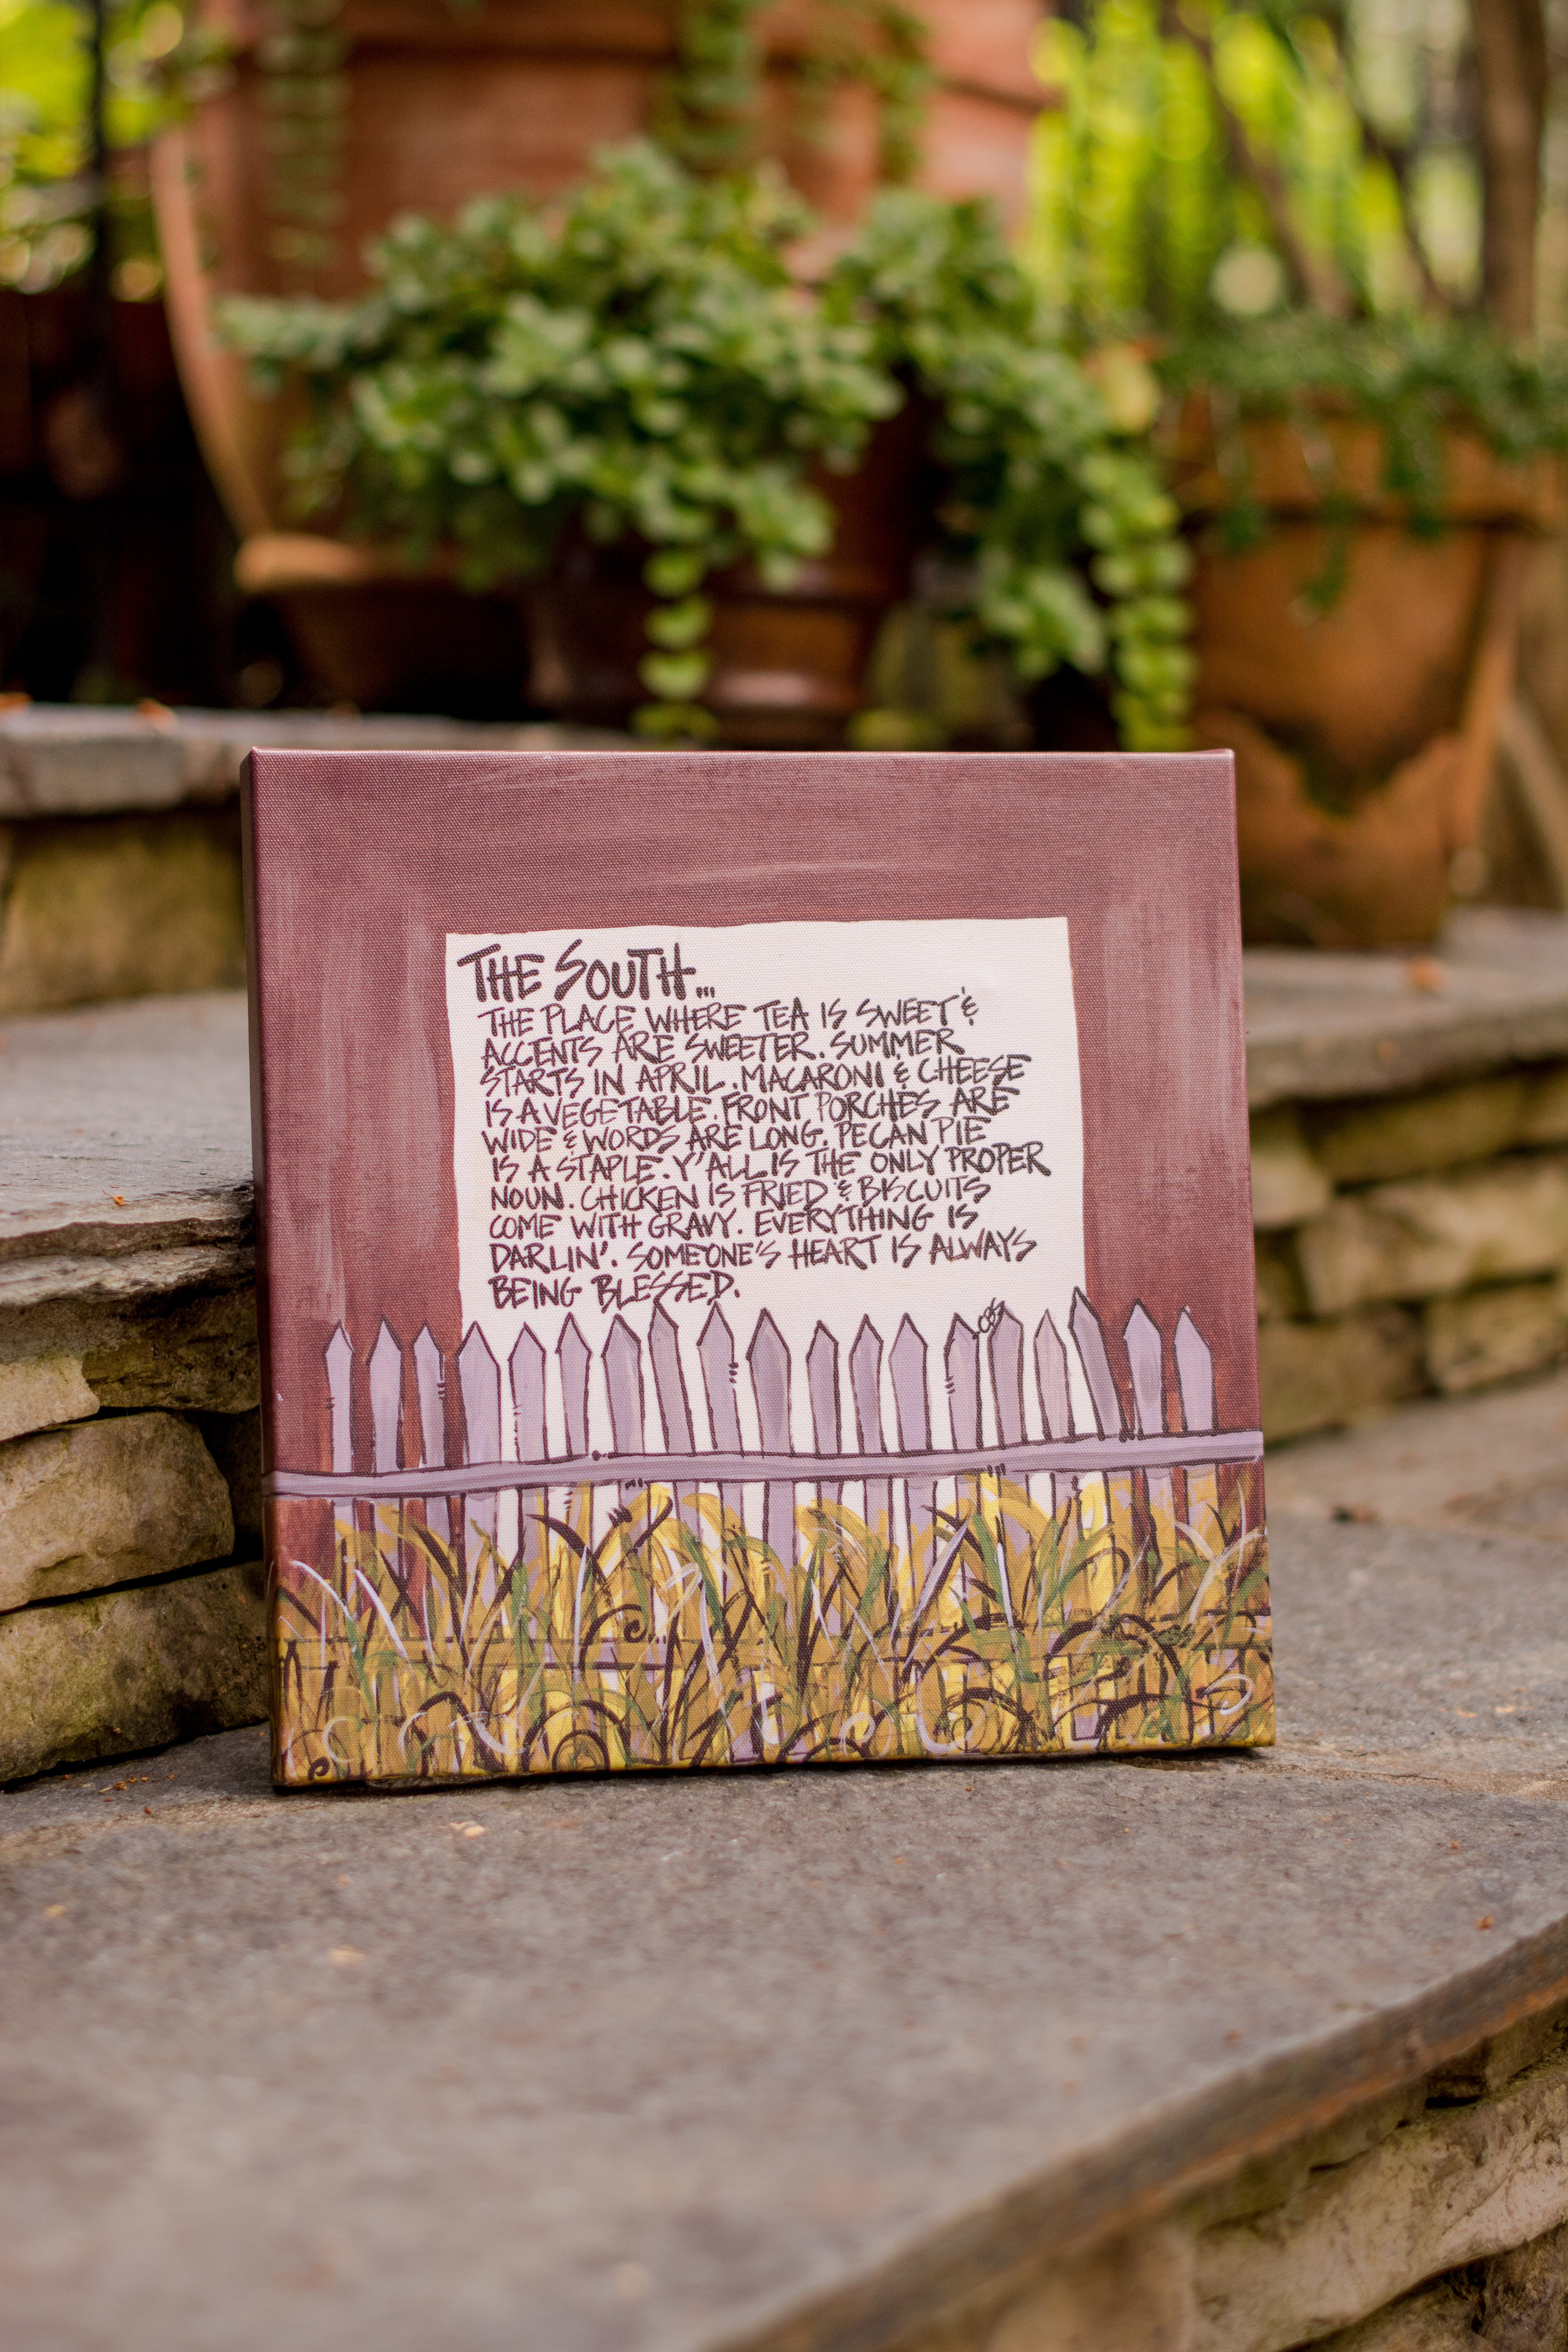 THE SOUTH...
THE PLACE WHERE TEA IS SWEET &
ACCENTS ARE SWEETER. SUMMER
STARTS IN APRIL. MACARONI & CHEESE
IS A VEGETABLE. FRONT PORCHES ARE
WIDE & WORDS ARE LONG. PECAN PIE
IS A STAPLE. Y'ALL IS THE ONLY PROPER
NOUN. CHICKEN IS FRIED & BISCUITS
COME WITH GRAVY. EVERYTHING IS
DARLIN'. SOMEONE'S HEART IS ALWAYS
BEING BLESSED.